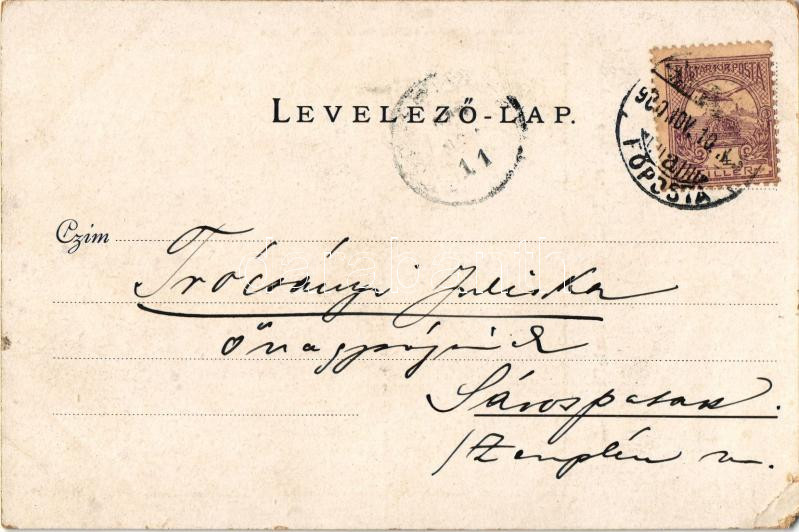 LEVELEZŐ-LAP.
MAGYAR KIR. POSTA
FILLÉR
900 NOV. 10
FŐPOSTA
11
Czim
Trócsányi Juliska
őnagyságának
Sárospatak.
/Zemplén m.